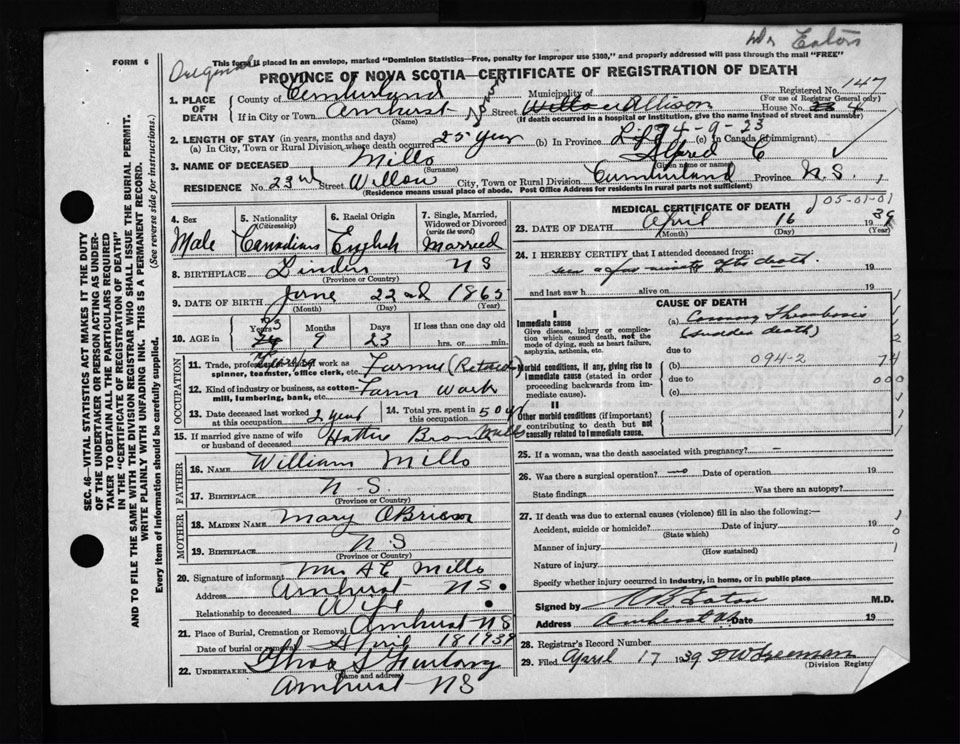 Dr Eaton
This form is placed in an envelope, marked "Dominion Statistics—Free, penalty for improper use $300," and properly addressed will pass through the mail "FREE"
FORM 6
Original
PROVINCE OF NOVA SCOTIA—CERTIFICATE OF REGISTRATION OF DEATH
Registered No. 147
(For use of Registrar General only)
1. PLACE OF DEATH County of Cumberland Municipality of
If in City or Town Amherst Street Allison House No. 4
(Name) (If death occurred in a hospital or institution, give the name instead of street and number)
2. LENGTH OF STAY (in years, months and days)
(a) In City, Town or Rural Division, where death occurred 25 Years (b) In Province Life (c) In Canada (if immigrant)
74-9-23
3. NAME OF DECEASED Mills Alfred C
(Surname) (Given name or names)
RESIDENCE No. 23 Street Willow City, Town or Rural Division Cumberland Province N.S.
(Residence means usual place of abode. Post Office Address for residents in rural parts not sufficient)
4. Sex Male
5. Nationality (Citizenship) Canadian
6. Racial Origin English
7. Single, Married, Widowed or Divorced (write the word) Married
8. BIRTHPLACE Linden N S
(Province or Country)
9. DATE OF BIRTH June 22nd 1865
(Month) (Day) (Year)
10. AGE in Years 73 Months 9 Days 23 If less than one day old hrs. or min.
OCCUPATION
11. Trade, profession or kind of work as spinner, teamster, office clerk, etc. Farmer (Retired)
12. Kind of industry or business, as cotton-mill, lumbering, bank, etc. Farm Work
13. Date deceased last worked at this occupation 2 years
14. Total yrs. spent in this occupation 50 yrs
15. If married give name of wife or husband of deceased Hattie Brown Mills
FATHER
16. NAME William Mills
17. BIRTHPLACE N. S.
(Province or Country)
MOTHER
18. MAIDEN NAME Mary O'Brien
19. BIRTHPLACE N S
(Province or Country)
20. Signature of informant Mrs A C Mills
Address Amherst N S.
Relationship to deceased Wife
21. Place of Burial, Cremation or Removal Amherst N S
Date of burial or removal April 18 1939
22. UNDERTAKER Thos S Furlong
(Name and address)
Amherst N S
MEDICAL CERTIFICATE OF DEATH
105-01-01
23. DATE OF DEATH April 16 1939
(Month) (Day) (Year)
24. I HEREBY CERTIFY that I attended deceased from:
seen a few minutes after death. 19
and last saw h alive on 19
CAUSE OF DEATH
I
Immediate cause
Give disease, injury or complication which caused death, not the mode of dying, such as heart failure, asphyxia, asthenia, etc.
(a) Coronary Thrombosis
(sudden death)
due to
Morbid conditions, if any, giving rise to immediate cause (stated in order proceeding backwards from immediate cause).
(b) 094-2 74
due to 000
(c)
II
Other morbid conditions (if important) contributing to death but not causally related to immediate cause.
25. If a woman, was the death associated with pregnancy? -
26. Was there a surgical operation? no Date of operation 19
State findings Was there an autopsy?
27. If death was due to external causes (violence) fill in also the following:—
Accident, suicide or homicide? Date of injury 19
(State which)
Manner of injury
(How sustained)
Nature of injury
Specify whether injury occurred in Industry, in home, or in public place
Signed by Eaton M.D.
Address Amherst N.S. Date 19
28. Registrar's Record Number
29. Filed April 17 1939 Freeman
(Division Registrar)
SEC. 46—VITAL STATISTICS ACT MAKES IT THE DUTY
OF THE UNDERTAKER OR PERSON ACTING AS UNDER-
TAKER TO OBTAIN ALL THE PARTICULARS REQUIRED
IN THE "CERTIFICATE OF REGISTRATION OF DEATH"
AND TO FILE THE SAME WITH THE DIVISION REGISTRAR WHO SHALL ISSUE THE BURIAL PERMIT.
WRITE PLAINLY WITH UNFADING INK. THIS IS A PERMANENT RECORD.
Every item of information should be carefully supplied. (See reverse side for instructions.)